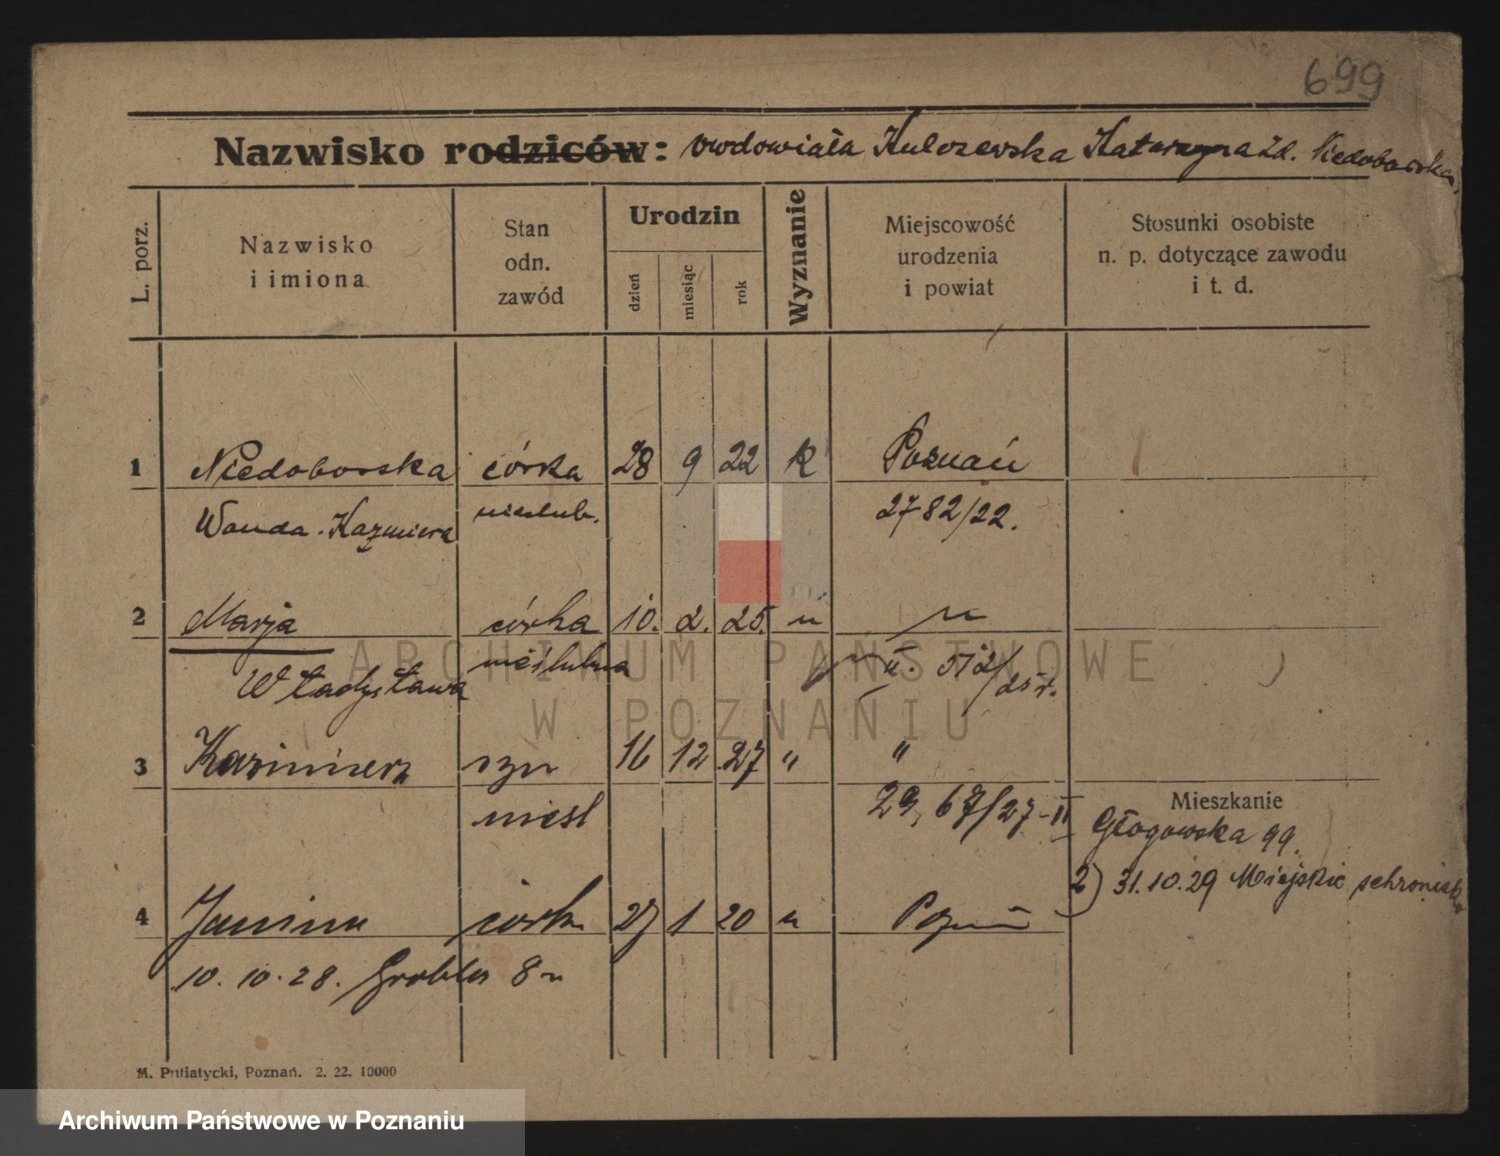 699
Nazwisko rodziców: owdowiała Kulczewska Katarzyna zd. Niedoborska
L. porz.
Nazwisko
i imiona
Stan
odn.
zawód
Urodzin
dzień
miesiąc
rok
Wyznanie
Miejscowość
urodzenia
i powiat
Stosunki osobiste
n. p. dotyczące zawodu
i t. d.
1 Niedoborska córka 28 9 22 k Poznań
Wanda Kazimiera nieślub. 2782/22.
2 Marja córka 10. 2. 25. " "
Władysława nieślubna II. 572/25 r.
3 Kazimierz syn 16 12 27 " "
nieśl 29, 67/27-II
Mieszkanie
Głogowska 99.
2) 31.10.29 Miejskie schronisko
4 Janina córka 27 1 20 " Poznań
10. 10. 28. Grobla 8
M. Putiatycki, Poznań. 2. 22. 10000
ARCHIWUM PAŃSTWOWE
W POZNANIU
Archiwum Państwowe w Poznaniu